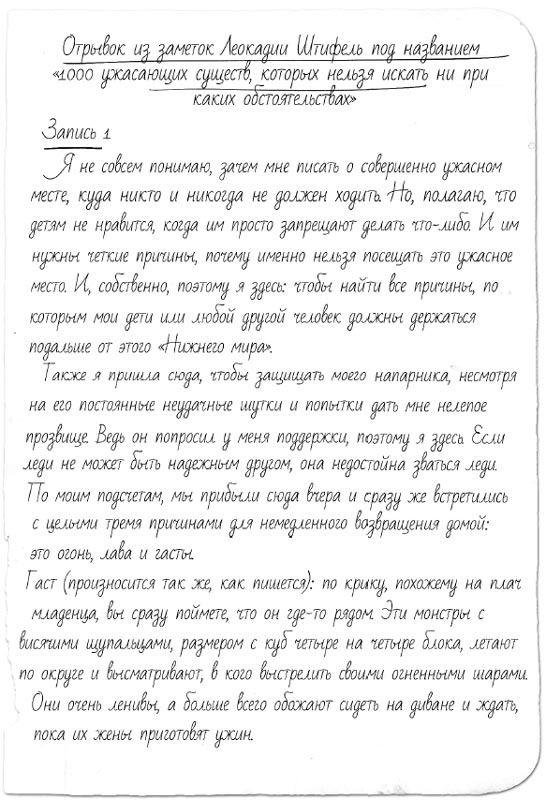 Отрывок из заметок Леокадии Штифель под названием
«1000 ужасающих существ, которых нельзя искать ни при
каких обстоятельствах»
Запись 1
Я не совсем понимаю, зачем мне писать о совершенно ужасном
месте, куда никто и никогда не должен ходить. Но, полагаю, что
детям не нравится, когда им просто запрещают делать что-либо. И им
нужны четкие причины, почему именно нельзя посещать это ужасное
место. И, собственно, поэтому я здесь: чтобы найти все причины, по
которым мои дети или любой другой человек должны держаться
подальше от этого «Нижнего мира».
Также я пришла сюда, чтобы защищать моего напарника, несмотря
на его постоянные неудачные шутки и попытки дать мне нелепое
прозвище. Ведь он попросил у меня поддержки, поэтому я здесь. Если
леди не может быть надежным другом, она недостойна зваться леди.
По моим подсчетам, мы прибыли сюда вчера и сразу же встретились
с целыми тремя причинами для немедленного возвращения домой:
это огонь, лава и гасты.
Гаст (произносится так же, как пишется): по крику, похожему на плач
младенца, вы сразу поймете, что он где-то рядом. Эти монстры с
висячими щупальцами, размером с куб четыре на четыре блока, летают
по округе и высматривают, в кого выстрелить своими огненными шарами.
Они очень ленивы, а больше всего обожают сидеть на диване и ждать,
пока их жены приготовят ужин.